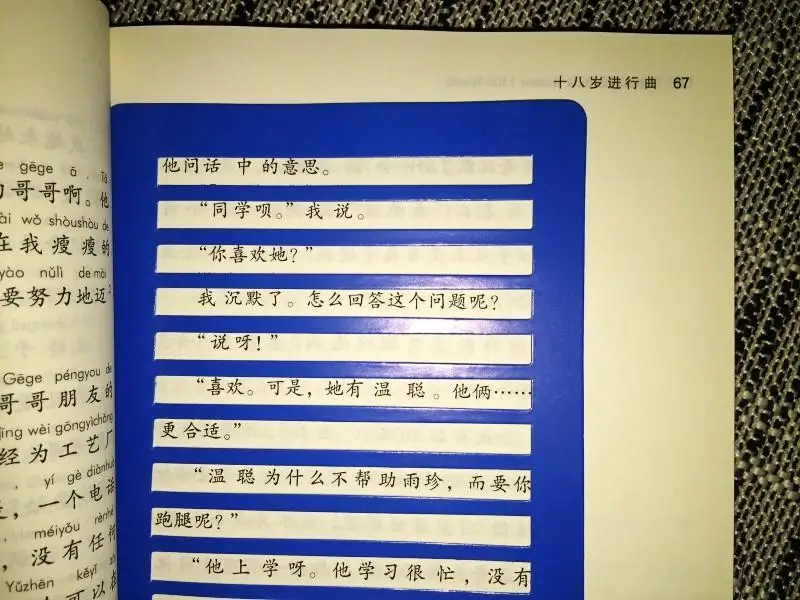 e gēge ā. Tā
哥哥啊。他
ài wǒ shòushòu de
在我瘦瘦的
yào nǔlì de mài
要努力地迈
Gēge péngyou de
哥哥朋友的
īng wèi gōngyìchǎng
经为工艺厂
yí gè diànhuà
，一个电话
méiyǒu rènhé
，没有任何
Yǔzhēn kěyǐ
十八岁进行曲 67
他问话中的意思。
“同学呗。”我说。
“你喜欢她？”
我沉默了。怎么回答这个问题呢？
“说呀！”
“喜欢。可是，她有温聪。他俩……
更合适。”
“温聪为什么不帮助雨珍，而要你
跑腿呢？”
“他上学呀。他学习很忙，没有